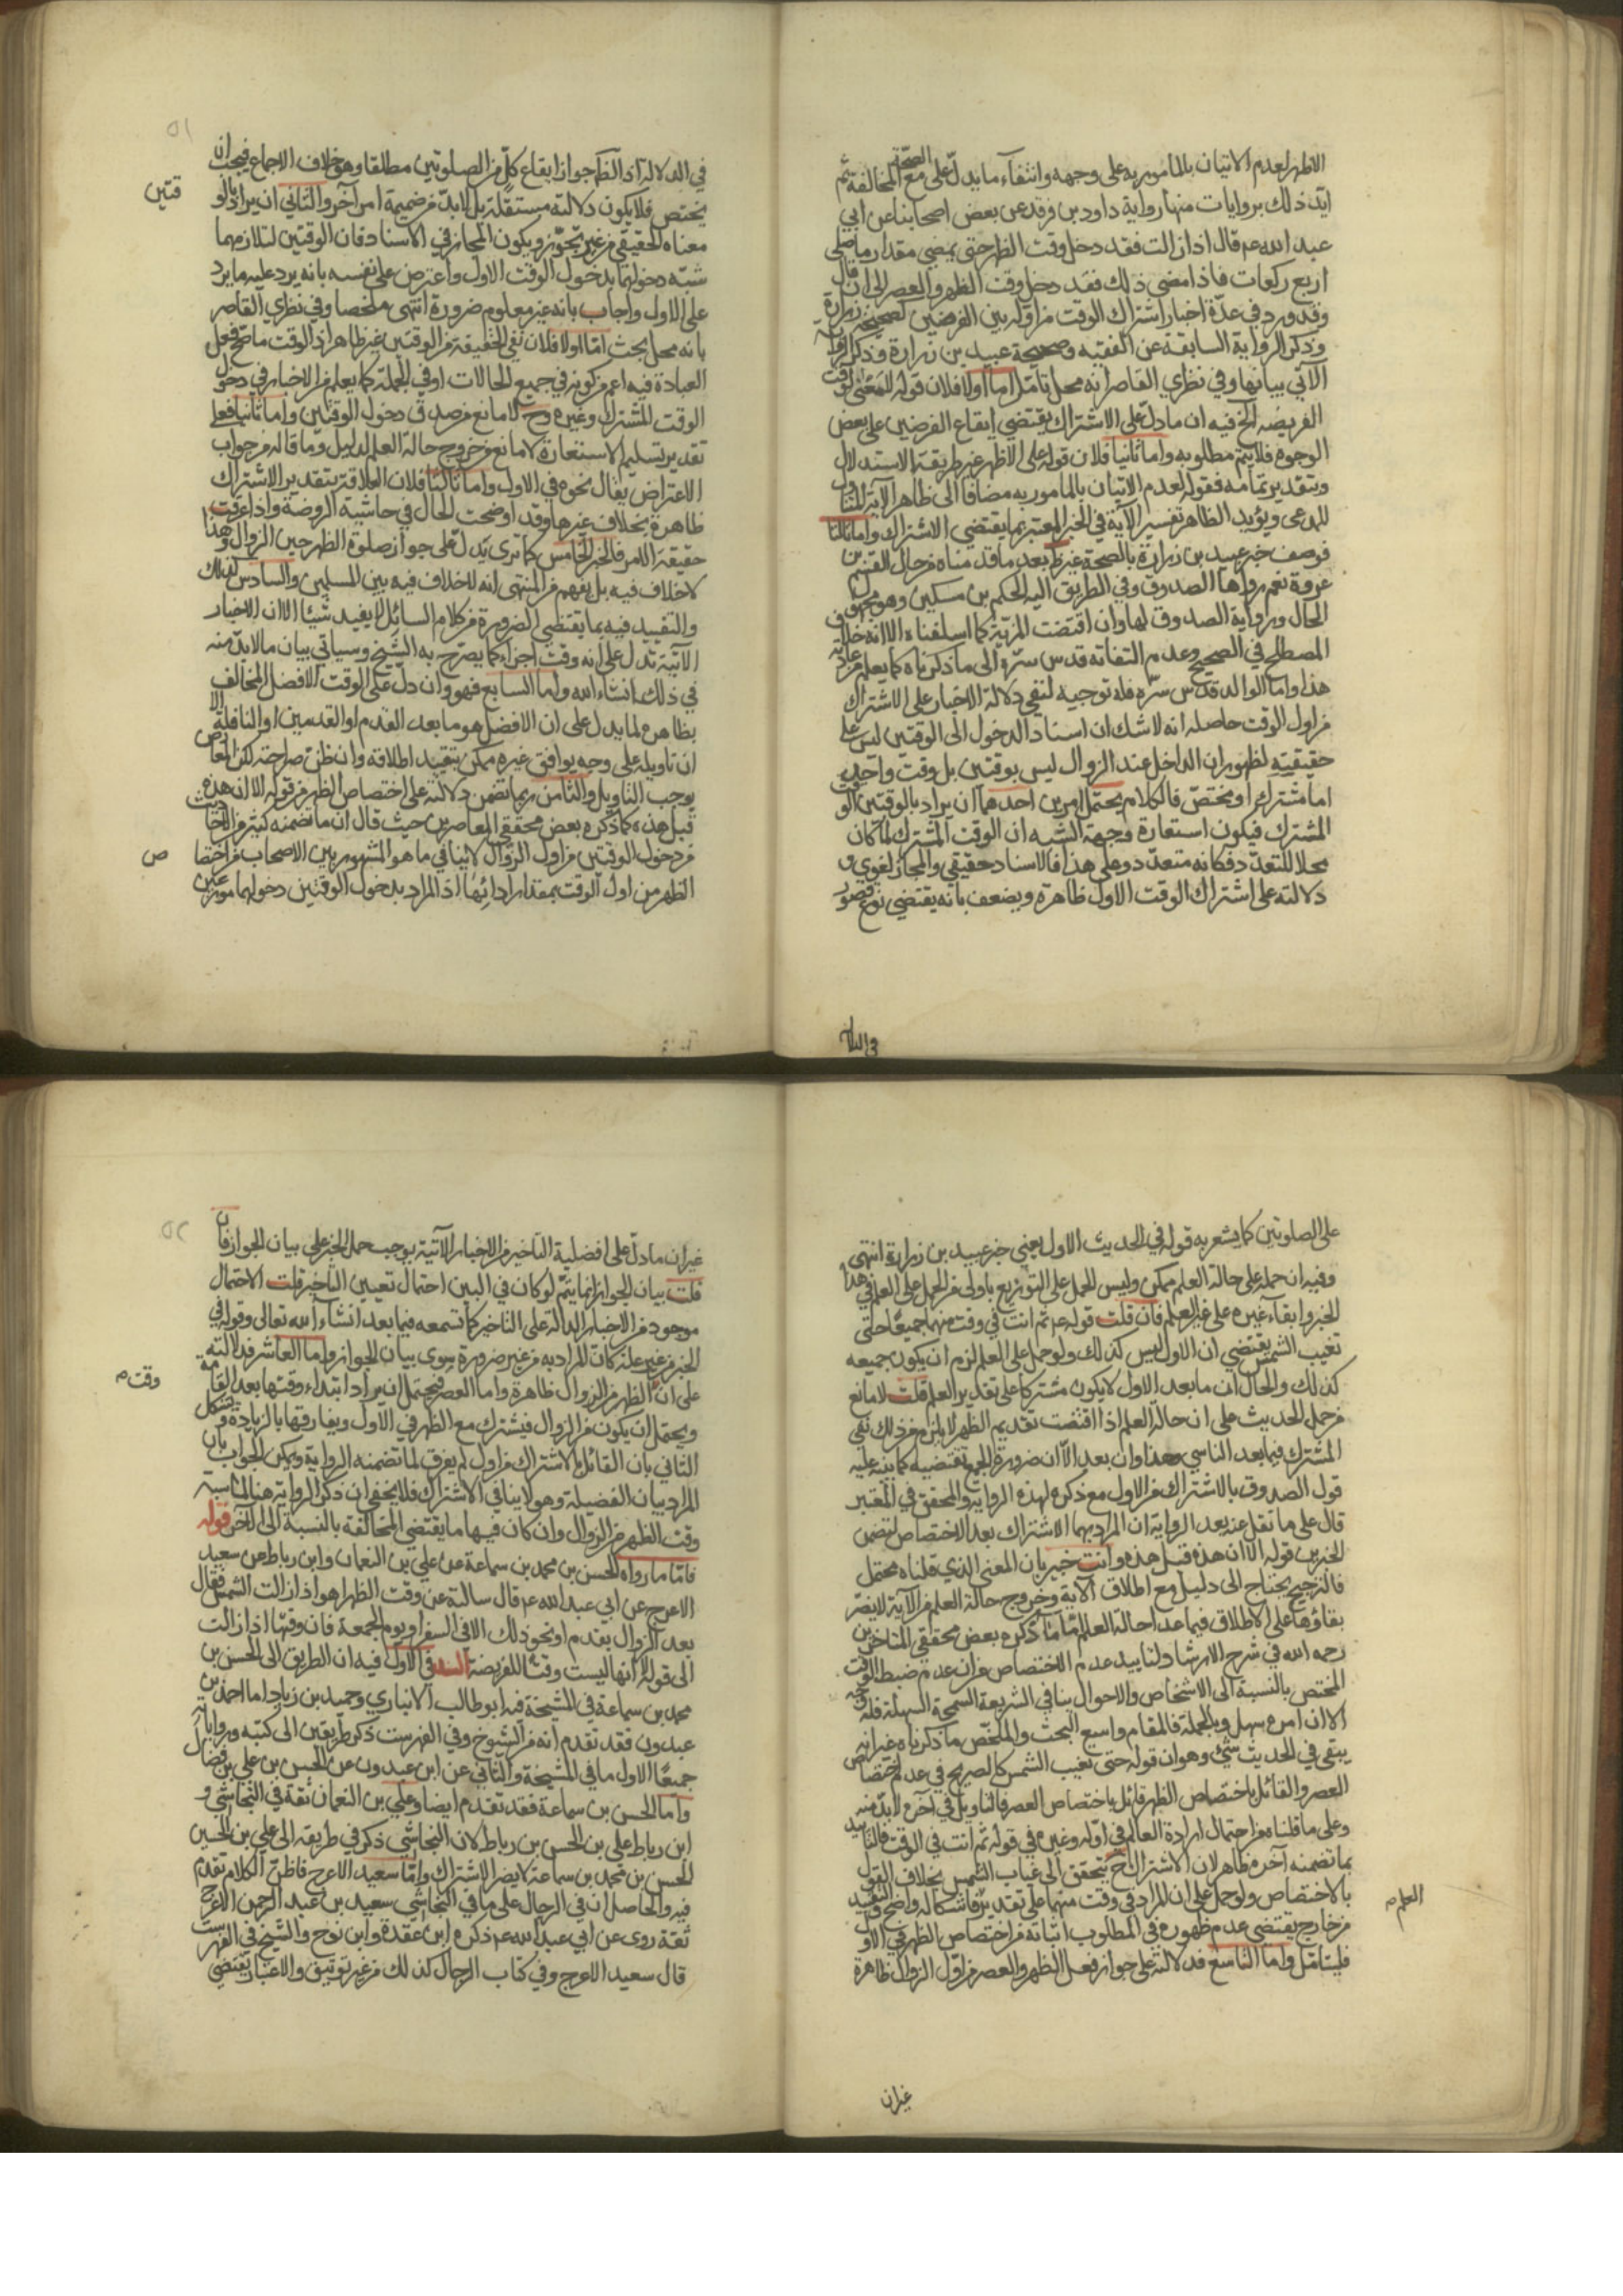 الاظهر لعدم الاتيان بالمأمور به على وجهه وانتفاء ما يدل على الصحة مع المخالفة ثم
ايد ذلك بروايات منها رواية داود بن فرقد عن بعض اصحابنا عن ابي
عبد الله عم قال اذا زالت فقد دخل وقت الظهر حتى يمضي مقدار ما يصلي
اربع ركعات فاذا مضى ذلك فقد دخل وقت الظهر والعصر الى ان قال
وقد ورد في عدة اخبار اشتراك الوقت من اوله بين الفرضين كصحيحة زرارة
وذكر الرواية السابقة عن الفقيه وصحيحة عبيد بن زرارة وذكر الرواية
الآتي بيانها وفي نظري القاصر انه محل تأمل اما اولا فلان قوله لا معنى لوقت
الفريضه الخ فيه ان ما دل على الاشتراك يقتضي ايقاع الفرضين على بعض
الوجوه فلا يتم مطلوبه واما ثانيا فلان قوله على الاظهر غير طريقة الاستدلال
وبتقدير تمامه فقوله لعدم الاتيان بالمأمور به مضافا الى ظاهر الآية المتناول
للمدعى ويؤيد الظاهر تفسير الآية في الخبر المعتبر بما يقتضي الاشتراك واما ثالثا
فوصف خبر عبيد بن زرارة بالصحة غير ظ بعد ما قدمناه من حال القسم بن
عروة نعم رواها الصدوق وفي الطريق اليه الحكم بن مسكين وهو مجهول
الحال ورواية الصدوق لها وان اقتضت المزية كما اسلفناه الا انه خلاف
المصطلح في الصحيح وعدم التفاته قدس سره الى ما ذكرناه كما يعلم من عادته
هذا واما الوالد قدس سره فله توجيه لنفي دلالة الاخبار على الاشتراك
من اول الوقت حاصله انه لا شك ان اسناد الدخول الى الوقتين ليس على
حقيقيته لظهور ان الداخل عند الزوال ليس بوقتين بل وقت واحد
اما مشترك او مختص فالكلام يحتمل امرين احدهما ان يراد بالوقتين الوقت
المشترك فيكون استعارة وجهة الشبه ان الوقت المشترك لما كان
محلا للتعدد فكانه متعدد وعلى هذا فالاسناد حقيقي والمجاز لغوي و
دلالته على اشتراك الوقت الاول ظاهرة ويضعف بانه يقتضي نوع قصور
في الدلالة
في الدلالة اذ الظ كما جواز ايقاع كل من الصلوتين مطلقا وهو خلاف الاجماع فيجب ان
يختص فلا يكون دلالته مستقلة بل لابد من ضميمة امر آخر والثاني ان يراد بالو
قتين
معناه الحقيقي من غير تجوز ويكون المجاز في الاسناد فان الوقتين لتلازمهما
شبه دخولهما بدخول الوقت الاول واعترض على نفسه بانه يرد عليه ما يرد
على الاول واجاب بانه غير معلوم ضرورة انتهى ملخصا وفي نظري القاصر
بانه محل بحث اما اولا فلان نفي الحقيقة من الوقتين غير ظاهر اذ الوقت ما صح فعل
العبادة فيه اعم من كونه في جميع الحالات او في الجملة كما يعلم من الاخبار في دخول
الوقت المشترك وغيره وح لا مانع من صدق دخول الوقتين واما ثانيا فعلى
تقدير تسليم الاستعارة لا مانع من خروج حالة العلم لدليل وما قاله من جواب
الاعتراض يقال نحوه في الاول واما ثالثا فلان العلاقة بتقدير الاشتراك
ظاهرة بخلاف غيرها وقد اوضحت الحال في حاشية الروضة واذا عرفت
حقيقة الامر فالخبر الخامس كما ترى يدل على جواز صلوة الظهر حين الزوال وهذا
لا خلاف فيه بل يفهم من المنتهى انه لا خلاف فيه بين المسلمين والسادس كذلك
والتقييد فيه بما يقتضي الضرورة من كلام السائل لا يفيد شيئا الا ان الاخبار
الآتية تدل على انه وقت اجزاء كما يصرح به الشيخ وسيأتي بيان ما لابد منه
في ذلك انشاء الله واما السابع فهو وان دل على الوقت الافضل المخالف
بظاهره لما يدل على ان الافضل هو ما بعد القدم او القدمين او النافلة الا
ان تاويله على وجه يوافق غيره ممكن بتقييد اطلاقه وان ظن صراحته لكن المعارض
يوجب التاويل والثامن ربما تضمن دلالته على اختصاص الظهر من قوله الا ان هذه
قبل هذه كما ذكره بعض محققي المعاصرين حيث قال ان ما تضمنه كثير من الاحاديث
من دخول الوقتين من اول الزوال لا ينافي ما هو المشهور بين الاصحاب من اختصا
ص
الظهر من اول الوقت بمقدار ادائها اذ المراد بدخول الوقتين دخولهما موزعين
على الصلوتين كما يشعر به قوله في الحديث الاول يعني خبر عبيد بن زرارة انتهى
وفيه ان حمله على حالة العلم ممكن وليس الحمل على التوزيع باولى من الحمل على العلم في هذا
الخبر وابقاء غيره على غير العلم فان قلت قوله عم ثم انت في وقت منهما جميعا حتى
تغيب الشمس يقتضي ان الاول ليس كذلك ولو حمل على العلم لزم ان يكون جميعه
كذلك والحال ان ما بعد الاول لا يكون مشتركا على تقدير العلم قلت لا مانع
من حمل الحديث على ان حالة العلم اذا اقتضت تقديم الظهر لا يلزم من ذلك نفي
المشترك فيما بعد الناسي وهذا وان بعد الا ان ضرورة الجمع تقتضيه كما ينبه عليه
قول الصدوق بالاشتراك من الاول مع ذكره لهذه الرواية والمحقق في المعتبر
قال على ما نقل عنه بعد الرواية ان المراد بهما الاشتراك بعد الاختصاص لتضمن
الخبرين قوله الا ان هذه قبل هذه وانت خبير بان المعنى الذي قلناه محتمل
فالترجيح يحتاج الى دليل مع اطلاق الآية وخروج حالة العلم من الآية لا يضر
بقاؤها على الاطلاق فيما عدا حالة العلم اما ما ذكره بعض محققي المتاخرين
رحمه الله في شرح الارشاد لتاييد عدم الاختصاص من ان عدم ضبط الوقت
المختص بالنسبة الى الاشخاص والاحوال ينافي الشريعة السمحة السهلة فله وجه
الا ان امره سهل وبالجملة فالمقام واسع البحث والملخص ما ذكرناه غير انه
يبقى في الحديث شيء وهو ان قوله حتى تغيب الشمس كالصريح في عدم اختصاص
العصر والقائل باختصاص الظهر قائل باختصاص العصر فالتاويل في آخره لابد منه
وعلى ما قلناه من احتمال ارادة العالم في اوله وغيره في قوله ثم انت في الوقت فالتاييد
بما تضمنه آخره ظاهر لان الاشتراك ح يتحقق الى غياب الشمس بخلاف القول
بالاختصاص ولو حمل على ان المراد في وقت منهما على تقدير فاشكاله واضح والتقييد
العلم م
من خارج يقتضي عدم ظهوره في المطلوب اثباته من اختصاص الظهر في الاول
فليتامل واما التاسع فدلالته على جواز فعل الظهر والعصر من اول الزوال ظاهرة
غير ان
غير ان ما دل على افضلية التاخير من الاخبار الآتية يوجب حمل الخبر على بيان الجواز فان
قلت بيان الجواز انما يتم لو كان في البين احتمال تعيين التاخير قلت الاحتمال
موجود من الاخبار الدالة على التاخير كما تسمعه فيما بعد انشاء الله تعالى وقوله في
الخبر من غير علة كان المراد به من غير ضرورة سوى بيان الجواز واما العاشر فدلالته
على ان الظهر من الزوال ظاهرة واما العصر فيحتمل ان يراد ابتداء وقتها بعد القامة
وقت م
ويحتمل ان يكون من الزوال فيشترك مع الظهر في الاول ويفارقها بالزيادة ويشكل
الثاني بان القائل بالاشتراك من اول لم يفرق لما تضمنه الرواية ويمكن الجواب بان
المراد بيان الفضيلة وهو لا ينافي الاشتراك فلا يخفى ان ذكر الرواية هنا لمناسبة
وقت الظهر من الزوال وان كان فيها ما يقتضي المخالفة بالنسبة الى الآخر قوله
فاما ما رواه الحسن بن محمد بن سماعة عن علي بن النعمان وابن رباط عن سعيد
الاعرج عن ابي عبد الله عم قال سالته عن وقت الظهر اهو اذا زالت الشمس فقال
بعد الزوال بقدم او نحو ذلك الا في السفر او يوم الجمعة فان وقتها اذا زالت
الى قوله لانها ليست وقتا للفريضة السند في الاول فيه ان الطريق الى الحسن بن
محمد بن سماعة في المشيخة فيه ابو طالب الانباري وحميد بن زياد اما احمد بن
عبدون فقد تقدم انه من الشيوخ وفي الفهرست ذكر طريقين الى كتبه ورواياته
جميعا الاول ما في المشيخة والثاني عن ابن عبدون عن الحسن بن علي بن فضال
واما الحسن بن سماعة فقد تقدم ايضا وعلي بن النعمان ثقة في النجاشي و
ابن رباط علي بن الحسن بن رباط لان النجاشي ذكر في طريقه الى علي بن الحسين
الحسن بن محمد بن سماعة لا يضر الاشتراك واما سعيد الاعرج فاظن الكلام تقدم
فيه والحاصل ان في الرجال على ما في النجاشي سعيد بن عبد الرحمن الاعرج
ثقة روى عن ابي عبد الله عم ذكره ابن عقدة وابن نوح والشيخ في الفهرست
قال سعيد الاعرج وفي كتاب الرجال كذلك من غير توثيق والاعتبار يقتضي